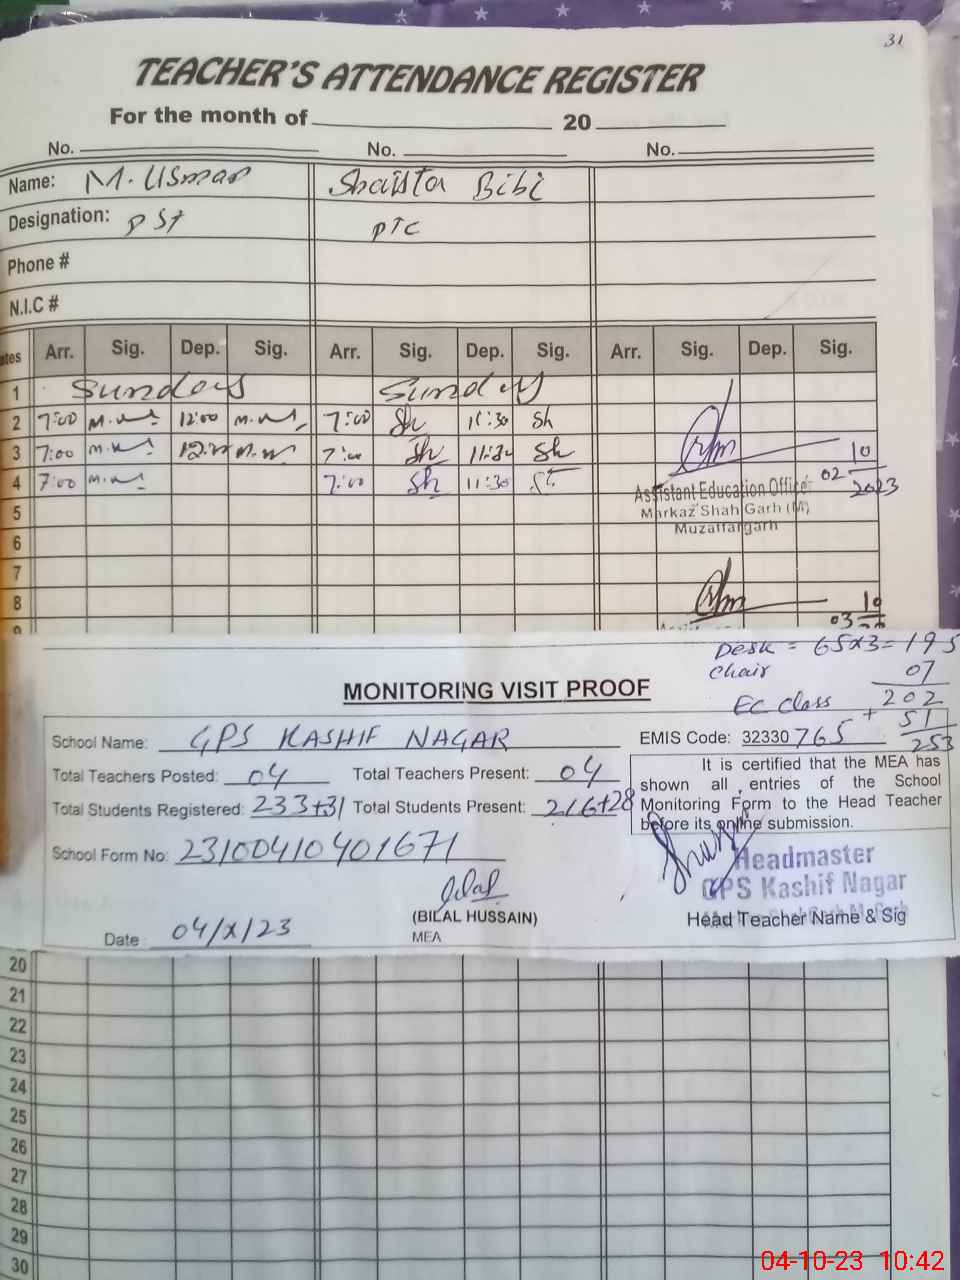 31
TEACHER'S ATTENDANCE REGISTER
For the month of 20
No. No. No.
Name: M. Usman Shaista Bibi
Designation: PST PTC
Phone #
N.I.C #
Arr. Sig. Dep. Sig. Arr. Sig. Dep. Sig. Arr. Sig. Dep. Sig.
1 Sunday Sunday
2 7:00 12:00 7:00 Sh 11:30 Sh
3 7:00 7:00 Sh 11:30 Sh
4 7:00 7:00 Sh 11:30
02 10 2023
Assistant Education Officer
Markaz Shah Garh (M)
Muzaffargarh
5
6
7
8
03 10
Desk = 65x3=195
Chair 07
202
EC Class + 51
253
MONITORING VISIT PROOF
School Name: GPS KASHIF NAGAR
EMIS Code: 32330 765
Total Teachers Posted: 04 Total Teachers Present: 04
Total Students Registered: 233+31 Total Students Present: 216+28
It is certified that the MEA has
shown all entries of the School
Monitoring Form to the Head Teacher
before its online submission.
School Form No: 23100410401671
Headmaster
GPS Kashif Nagar
(BILAL HUSSAIN)
MEA
Head Teacher Name & Sig
Date: 04/X/23
20
21
22
23
24
25
26
27
28
29
30
04-10-23 10:42